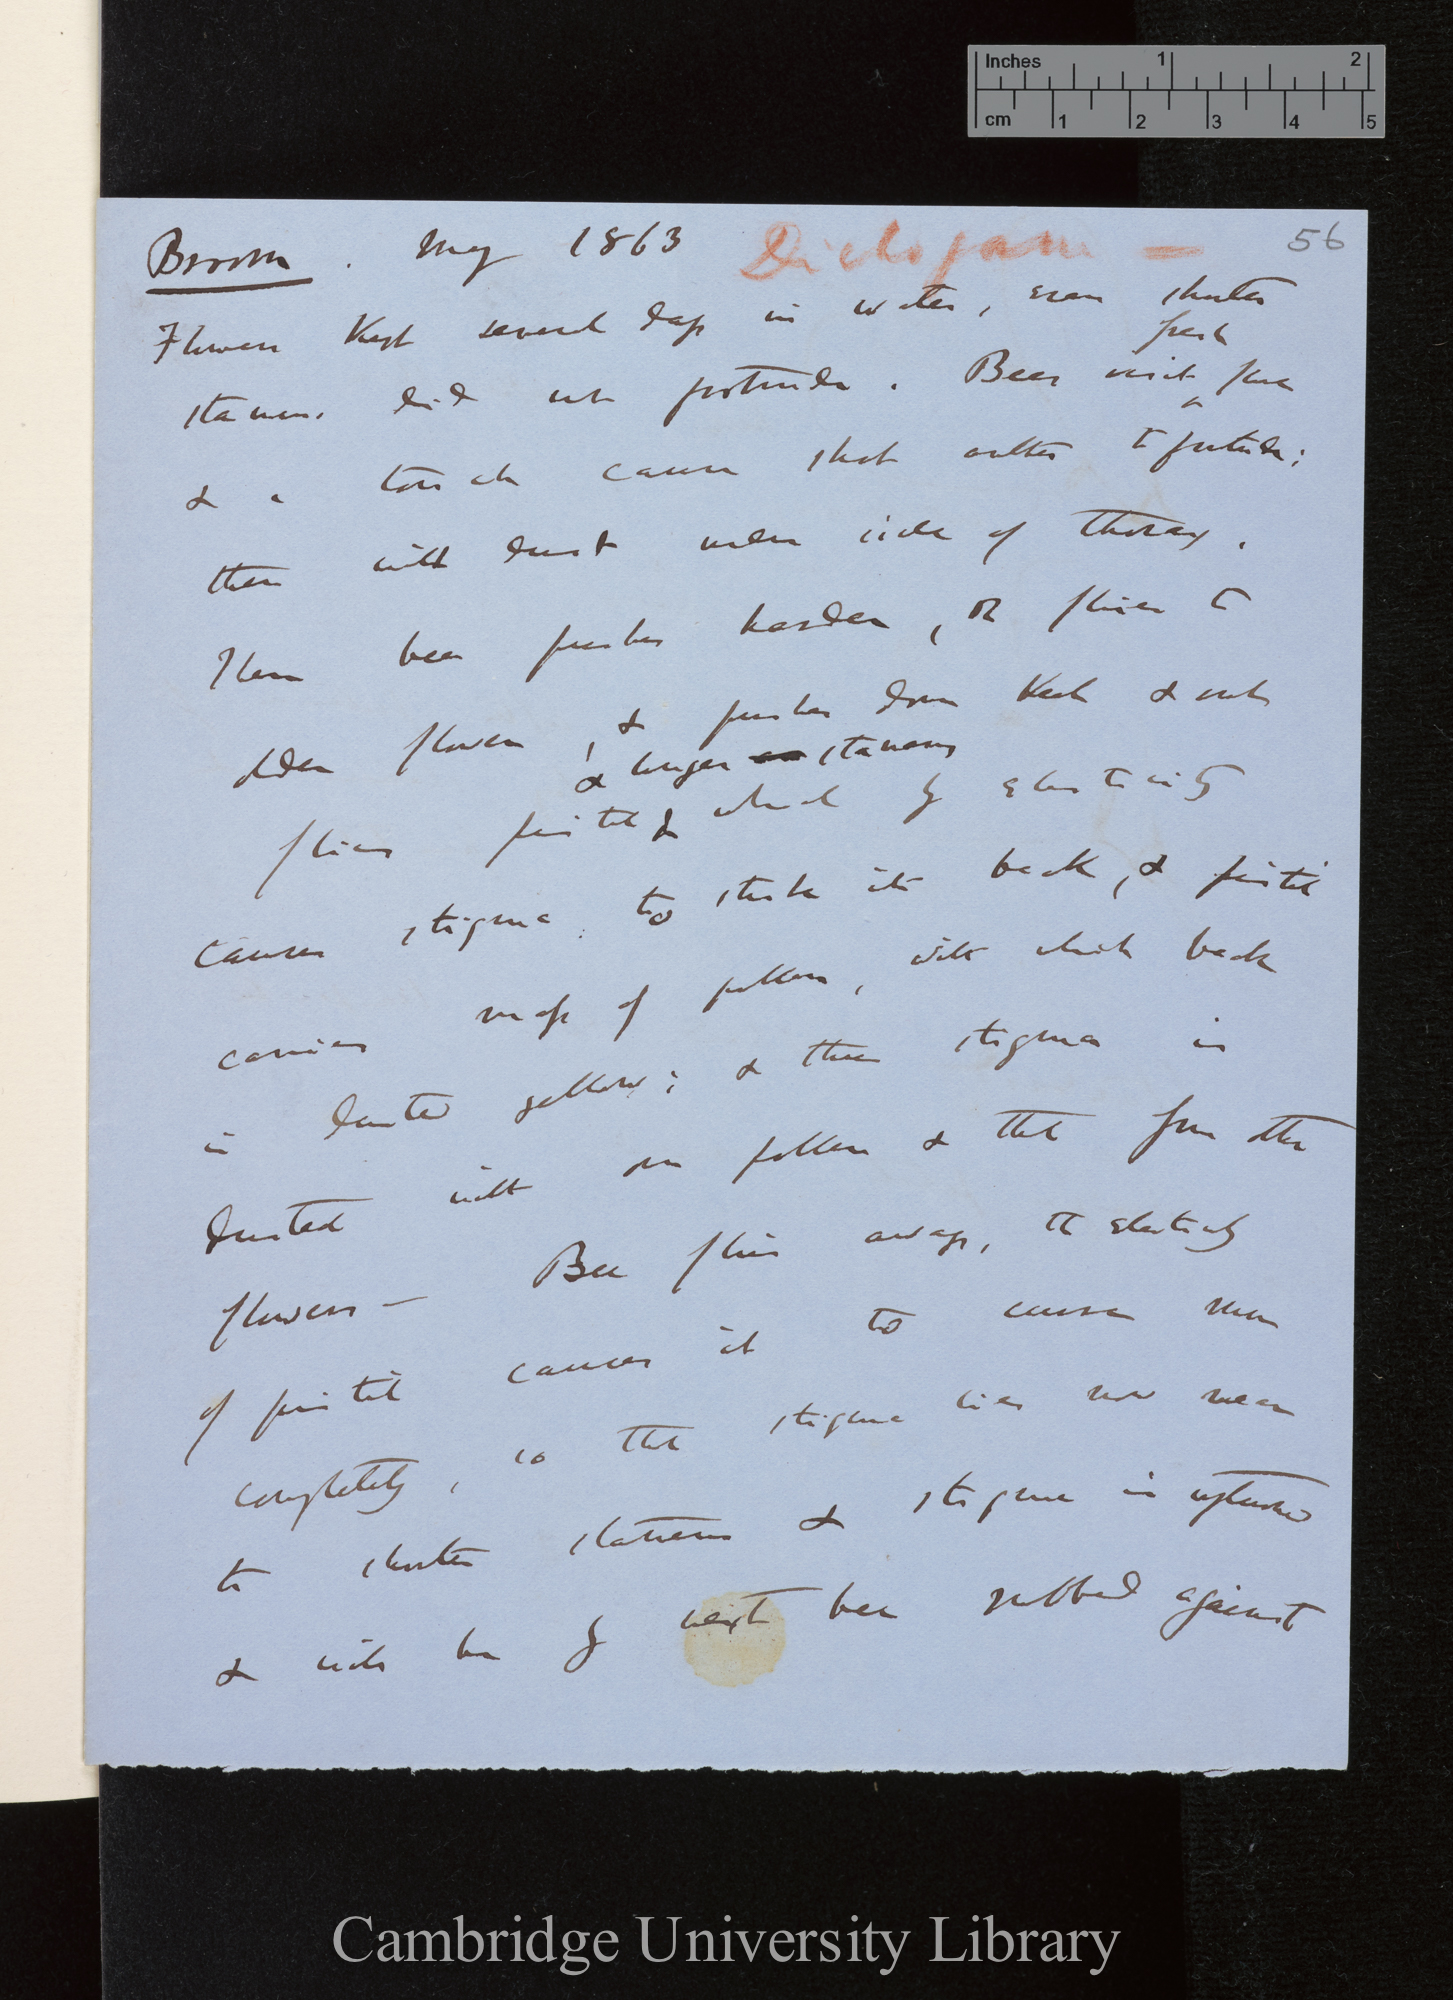 Inches 1 2
cm 1 2 3 4 5
Broom. May 1863 Dichogam — 56
Flowers kept several days in water, even shorter
stamens did not protrude. Bees visit fresh flower
& a touch causes short anthers to protrude;
then will dust under side of thorax.
Then bee pushes harder, or flies to
older flower, & pushes down keel & out
flies pistil & which by elasticity
& longer stamens
causes stigma to strike its back, & pistil
carries mass of pollen, with which back
is dusted yellow; & then stigma is
dusted with own pollen & that from other
flowers — Bee flies away, the elasticity
of pistil causes it to curve more
completely, so that stigma lies now near
to shorter stamens & stigma is upturned
& will be by next bee rubbed against
Cambridge University Library